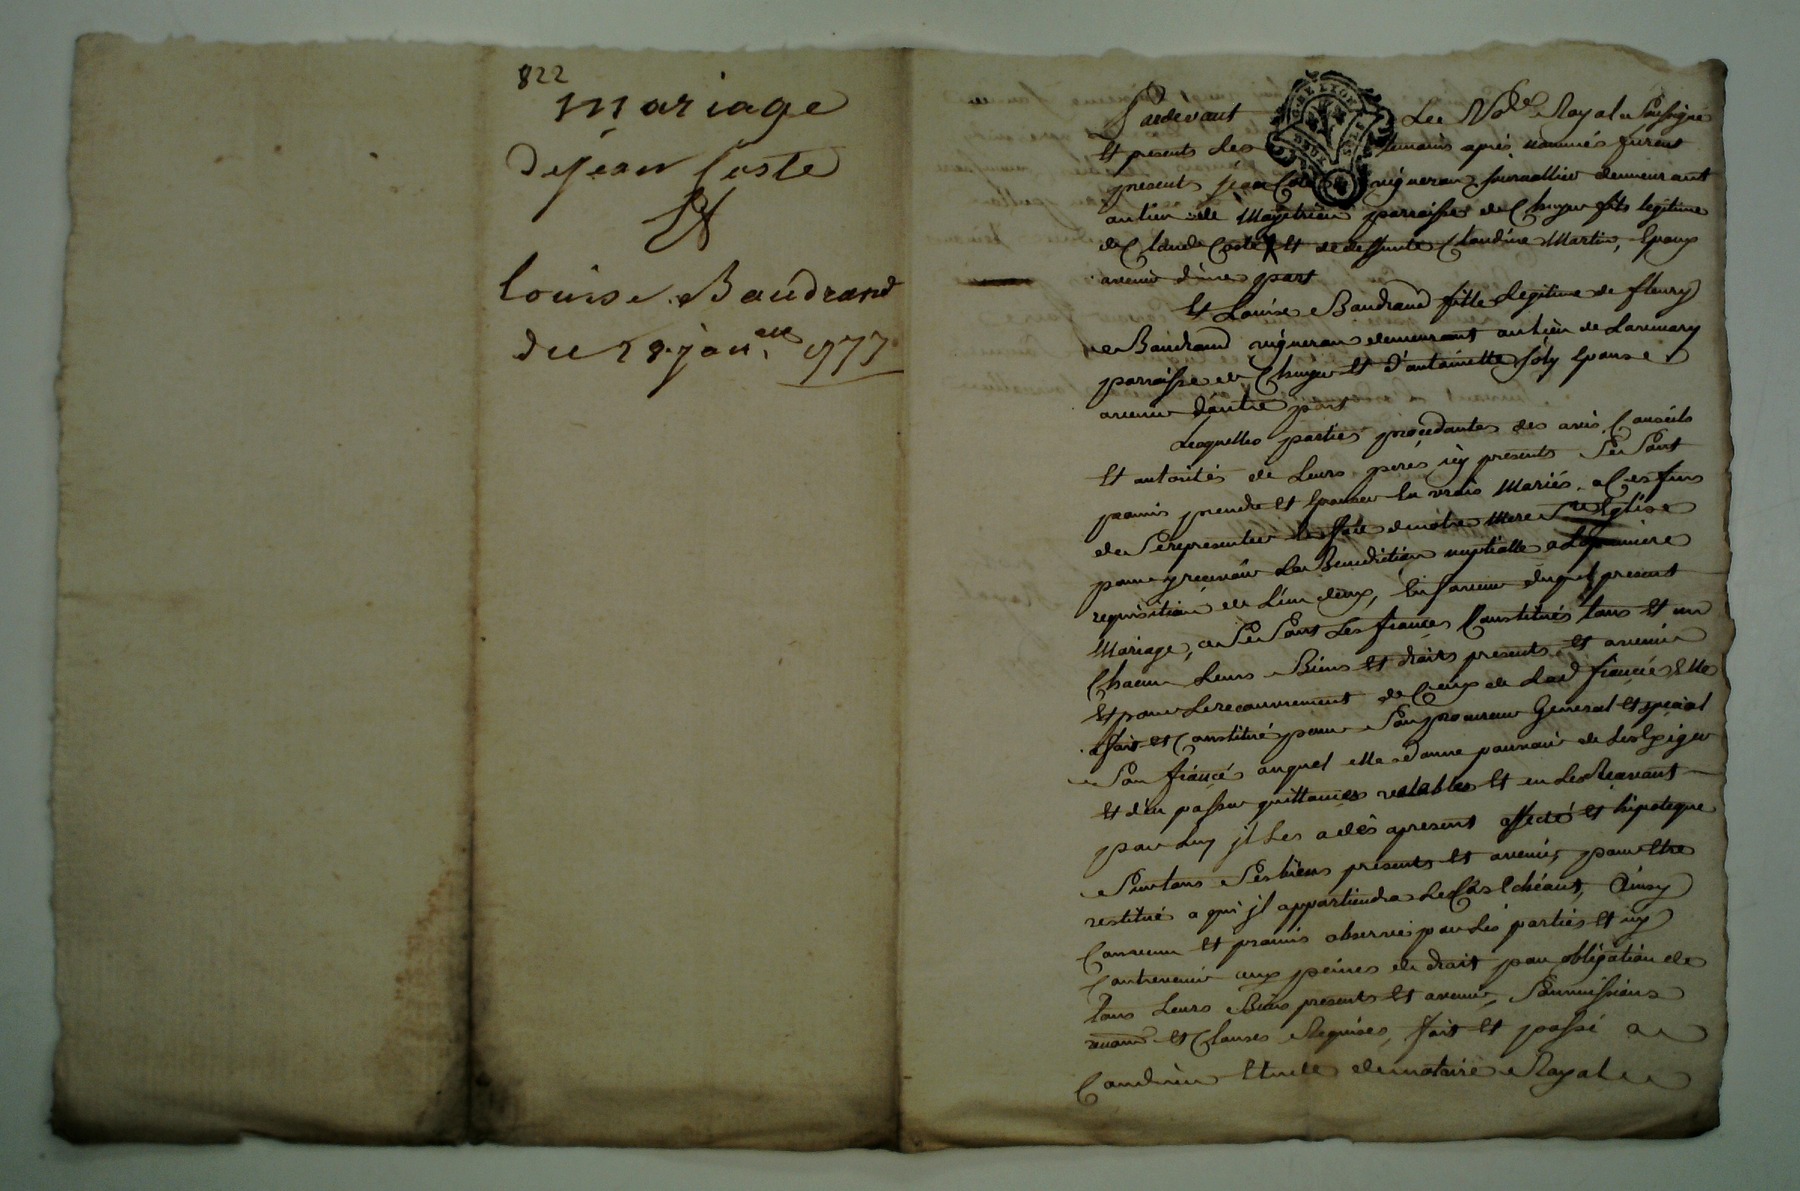 822
Mariage
de jean Coste
Et
Louise Baudrand
du 28 janer 1777
Pardevant Le Nore Royal Soussigné
Et presents Les temoins apres nommés furent
presents jean Coste vigneron journallier demeurant
au lieu de parroisse de Chuyer fils legitime
de Claude Coste Et de deffunte Claudine Martin, Epoux
avenir d'une part
Et Louise Baudrand fille Legitime de fleury
Baudrand vigneron demeurant au lieu de Laremary
parroisse de Chuyer Et d'antoinette joly Epouse
avenir d'autre part
Lesquelles parties procedantes des avis Conseils
Et autorités de Leurs peres icy presents Se Sont
promis prendre Et Epouser En vrais Mariés, a Ces fins
de Se representer En face de notre Mere Ste Eglise
pour y recevoir La Benediction nuptialle a La premiere
requisition de L'un deux, En faveur duquel present
Mariage, Se Sont Les fiancés Constitués tous Et un
Chacun Leurs Biens Et droits presents Et avenir
Et pour Le recouvrement de Ceux de Lad fiancée Elle
a fait Et Constitué pour Son procureur General Et special
Son fiancé auquel elle donne pouvoir de Les Exiger
Et d'en passer quittances valables Et en Les Recevant
par Luy jl Les a dès apresent affecté Et hipotequé
Sur tous Ses biens presents Et avenir, pour Etre
restitué a qui jl appartiendra Le Cas Echéant, Ainsy
Convenu Et promis observer par Les parties Et n'y
Contrevenir aux peines de droit par obligation de
tous Leurs Biens presents Et avenir, Soumissions
renonons Et Clauses Requises, fait Et passé a
Condrieu Etude de notaire Royal